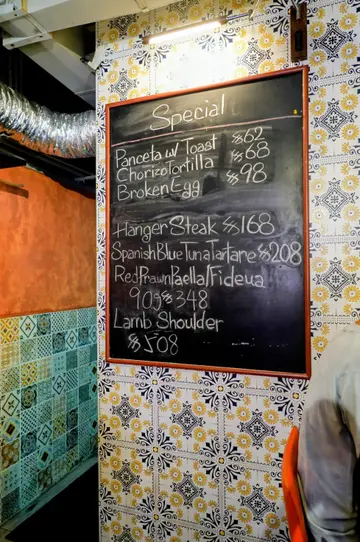 Special
Panceta w/ Toast $62
Chorizo Tortilla $68
Broken Egg $98
Hanger Steak $168
Spanish Blue Tuna Tartare $208
Red Prawn Paella/Fideua
909 $348
Lamb Shoulder
$508